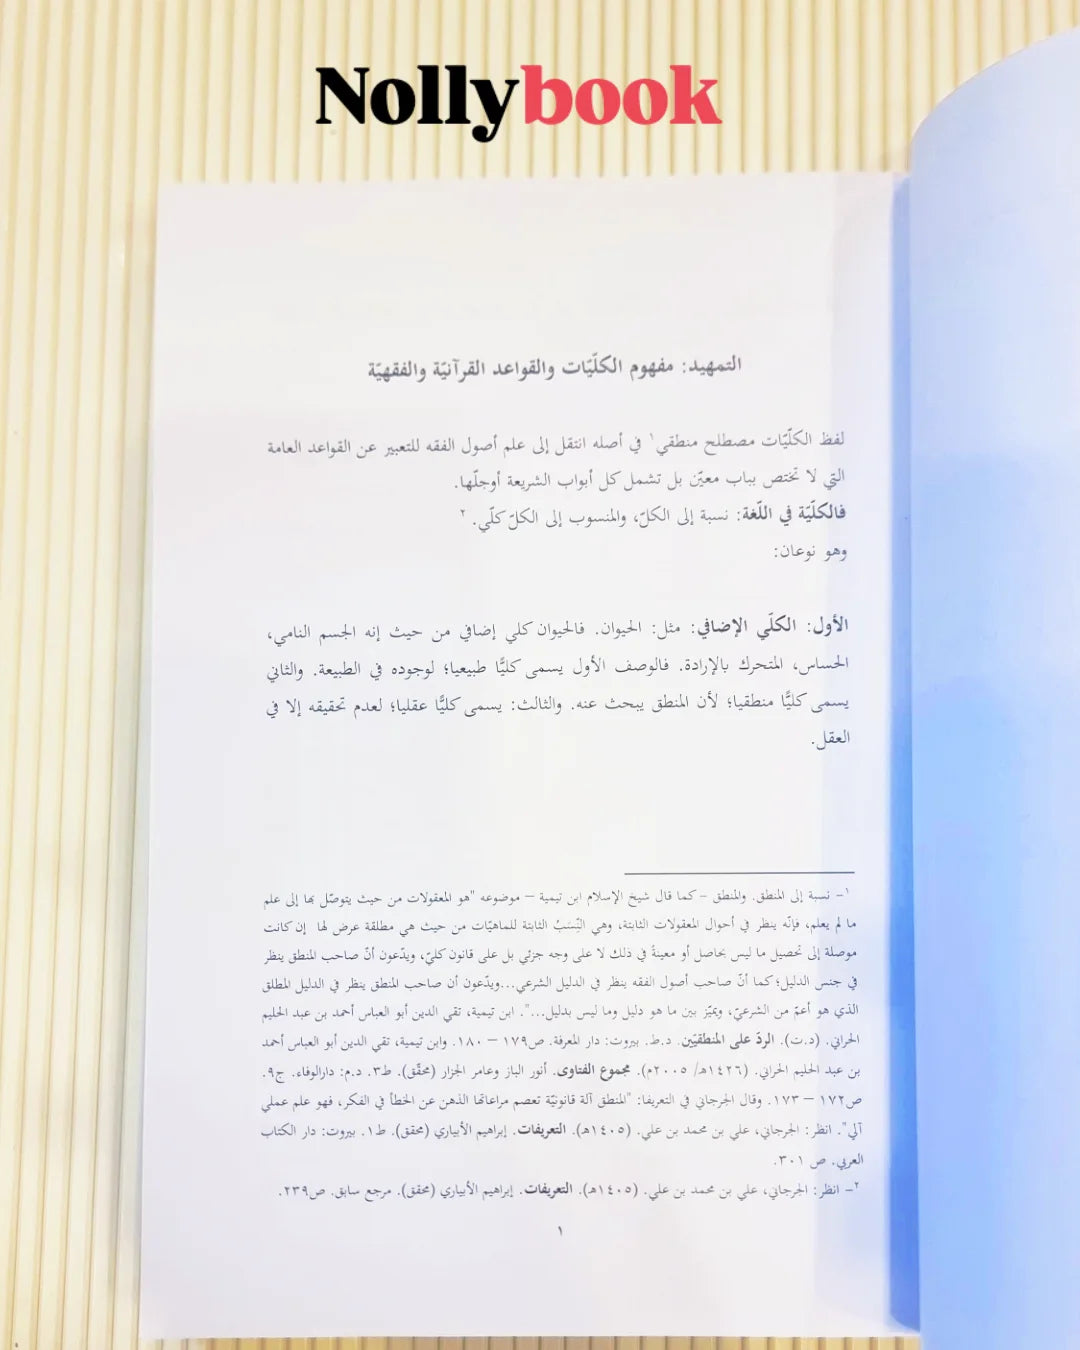 Nollybook
التمهيد: مفهوم الكلّيّات والقواعد القرآنيّة والفقهيّة
لفظ الكلّيّات مصطلح منطقي١ في أصله انتقل إلى علم أصول الفقه للتعبير عن القواعد العامة
التي لا تختص بباب معيّن بل تشمل كل أبواب الشريعة أوجلّها.
فالكلّيّة في اللّغة: نسبة إلى الكلّ، والمنسوب إلى الكلّ كلّي. ٢
وهو نوعان:
الأول: الكلّي الإضافي: مثل: الحيوان. فالحيوان كلي إضافي من حيث إنه الجسم النامي،
الحساس، المتحرك بالإرادة. فالوصف الأول يسمى كليًّا طبيعيا؛ لوجوده في الطبيعة. والثاني
يسمى كليًّا منطقيا؛ لأن المنطق يبحث عنه. والثالث: يسمى كليًّا عقليا؛ لعدم تحقيقه إلا في
العقل.
١- نسبة إلى المنطق. والمنطق – كما قال شيخ الإسلام ابن تيمية – موضوعه "هو المعقولات من حيث يتوصّل بها إلى علم
ما لم يعلم، فإنّه ينظر في أحوال المعقولات الثابتة، وهي النِّسَبُ الثابتة للماهيّات من حيث هي مطلقة عرض لها إن كانت
موصلة إلى تحصيل ما ليس بحاصل أو معينةً في ذلك لا على وجه جزئي بل على قانون كليّ، ويدّعون أنّ صاحب المنطق ينظر
في جنس الدليل؛ كما أنّ صاحب أصول الفقه ينظر في الدليل الشرعي...ويدّعون أن صاحب المنطق ينظر في الدليل المطلق
الذي هو أعمّ من الشرعيّ، ويميّز بين ما هو دليل وما ليس بدليل...". ابن تيمية، تقي الدين أبو العباس أحمد بن عبد الحليم
الحراني. (د.ت). الردّ على المنطقيّين. د.ط. بيروت: دار المعرفة. ص١٧٩ – ١٨٠. وابن تيمية، تقي الدين أبو العباس أحمد
بن عبد الحليم الحراني. (١٤٢٦هـ/ ٢٠٠٥م). مجموع الفتاوى. أنور الباز وعامر الجزار (محقّق). ط٣. د.م: دارالوفاء. ج٩.
ص١٧٢ – ١٧٣. وقال الجرجاني في التعريفا: "المنطق آلة قانونيّة تعصم مراعاتها الذهن عن الخطأ في الفكر، فهو علم عملي
آلي". انظر: الجرجاني، علي بن محمد بن علي. (١٤٠٥هـ). التعريفات. إبراهيم الأبياري (محقق). ط١. بيروت: دار الكتاب
العربي. ص ٣٠١.
٢- انظر: الجرجاني، علي بن محمد بن علي. (١٤٠٥هـ). التعريفات. إبراهيم الأبياري (محقق). مرجع سابق. ص٢٣٩.
١